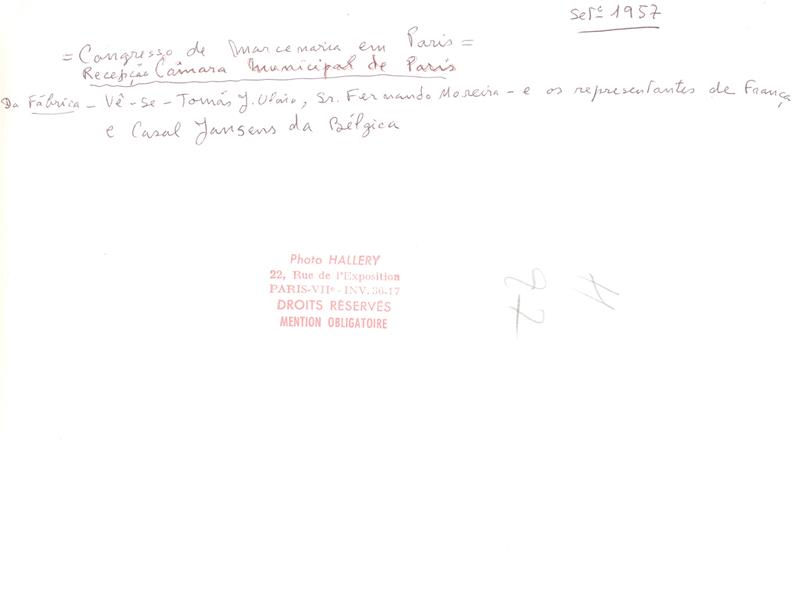 Setº 1957
= Congresso de Marcenaria em Paris =
Recepção Câmara Municipal de Paris
Da Fábrica - Vê-se - Tomás J. Olaio, Sr. Fernando Moreira - e os representantes de França
e Casal Jansens da Bélgica
Photo HALLERY
22, Rue de l'Exposition
PARIS-VIIᵉ - INV. 36-17
DROITS RÉSERVÉS
MENTION OBLIGATOIRE